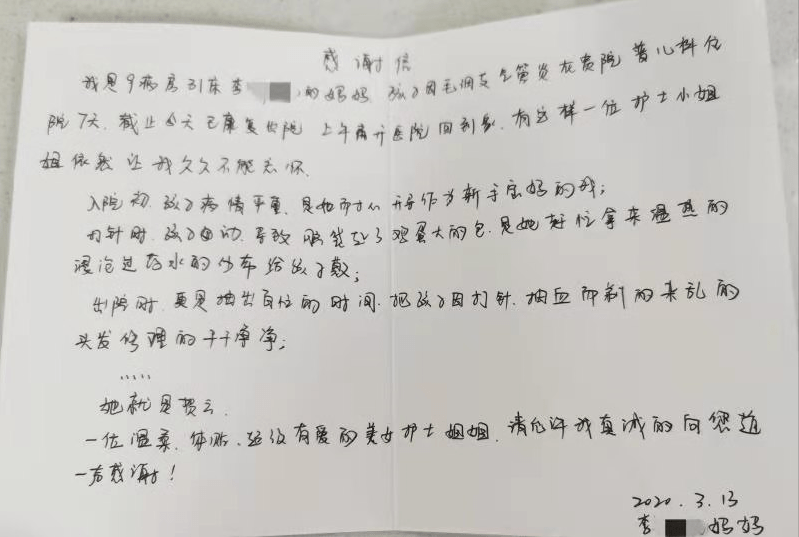 感谢信
我是9病房31床李 的妈妈 孩子因毛细支气管炎在贵院普儿科住
院7天,截止今天已康复出院 上午离开医院回到家,有这样一位护士小姐
姐依然让我久久不能忘怀.
入院初,孩子病情严重,是她耐心 开导作为新手宝妈的我;
打针时,孩子 动,导致 起了鸡蛋大的包,是她赶忙拿来温热的
浸泡过 水的纱布给孩子敷;
出院时,更是抽出自己的时间,把孩子因打针、抽血而剃的杂乱的
头发修理的干干净净;
.....
她就是贾云
一位温柔、体贴、超级有爱的美女护士姐姐,请允许我真诚的向您道
一声感谢!
2020.3.13
李 妈妈